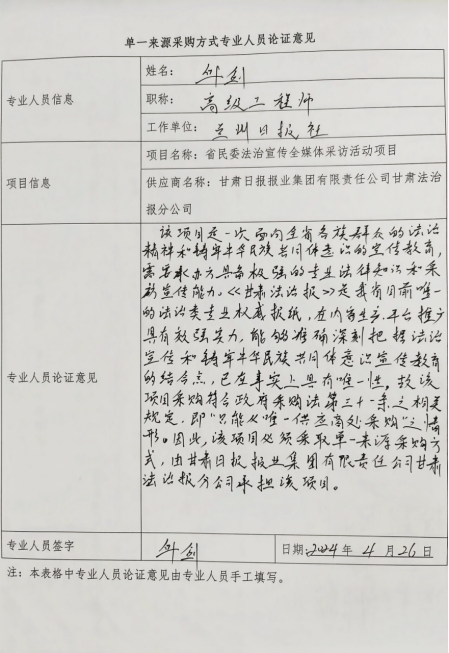 单一来源采购方式专业人员论证意见
专业人员信息
姓名：
职称：高级工程师
工作单位：兰州日报社
项目信息
项目名称：省民委法治宣传全媒体采访活动项目
供应商名称：甘肃日报报业集团有限责任公司甘肃法治
报分公司
专业人员论证意见
该项目是一次面向全省各族群众的法治
精神和铸牢中华民族共同体意识的宣传教育，
需要承办方具备极强的专业法律知识和采
宣传能力。《甘肃法治报》是我省目前唯一
的法治类专业权威报纸，在内容生产、平台推广
具有较强实力，能够准确深刻把握法治
宣传和铸牢中华民族共同体意识宣传教育
的结合点，已在事实上具有唯一性。故该
项目采购符合政府采购法第三十一条之相关
规定，即“只能从唯一供应商处采购”之情
形。因此，该项目必须采取单一来源采购方
式，由甘肃日报报业集团有限责任公司甘肃
法治报分公司承担该项目。
专业人员签字
日期：2024年4月26日
注：本表格中专业人员论证意见由专业人员手工填写。